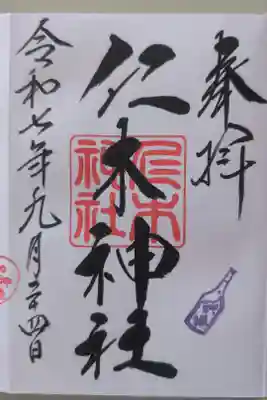 奉拝
仁木神社
仁木
神社
令和七年九月二十四日